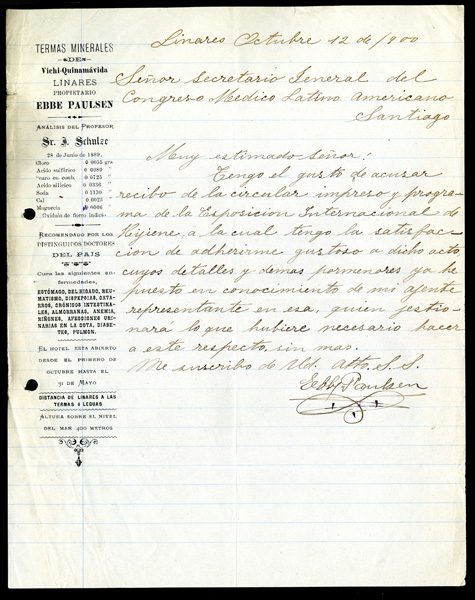 TERMAS MINERALES
DE
Vichi-Quinamávida
LINARES
PROPIETARIO
EBBE PAULSEN
ANÁLISIS DEL PROFESOR
Sr. J. Schulze
28 de Junio de 1889.
Cloro 0 0655 grs.
Acido sulfúrico 0 0080 "
"uro en comb. 0 0725 "
Acido silírico 0 0391 "
Soda 0 1120 "
Cal 0 0023 "
Magnesia 0 0006 "
Oxidulo de fierro indicio
RECOMENDADO POR LOS
DISTINGUIDOS DOCTORES
DEL PAIS
Cura las siguientes enfermedades,
ESTÓMAGO, DEL HIGADO, REUMATISMO, DISPEPSIAS, CATARROS, CRÓNICOS INTESTINALES, ALMORRANAS, ANEMIA, RIÑONES, AFECCIONES URINARIAS EN LA GOTA, DIABETER, PULMON.
EL HOTEL ESTA ABIERTO
DESDE EL PRIMERO DE
OCTUBRE HASTA EL
31 DE MAYO
DISTANCIA DE LINARES A LAS
TERMAS 4 LEGUAS
ALTURA SOBRE EL NIVEL
DEL MAR 400 METROS
Linares Octubre 12 de /900
Señor Secretario Jeneral del
Congreso Medico Latino Americano
Santiago
Muy estimado Señor:
Tengo el gusto de acusar
recibo de la circular impreso y programa
de la Esposicion Internacional de
Hijiene, a la cual tengo la satisfaccion
de adherirme gustoso a dicho acto,
cuyos detalles y demas pormenores ya he
puesto en conocimiento de mi ajente
representante en esa, quien jestionará
lo que hubiere necesario hacer
a este respecto, sin mas.
Me suscribo de Ud. Atto. S. S.
Ebbe Paulsen